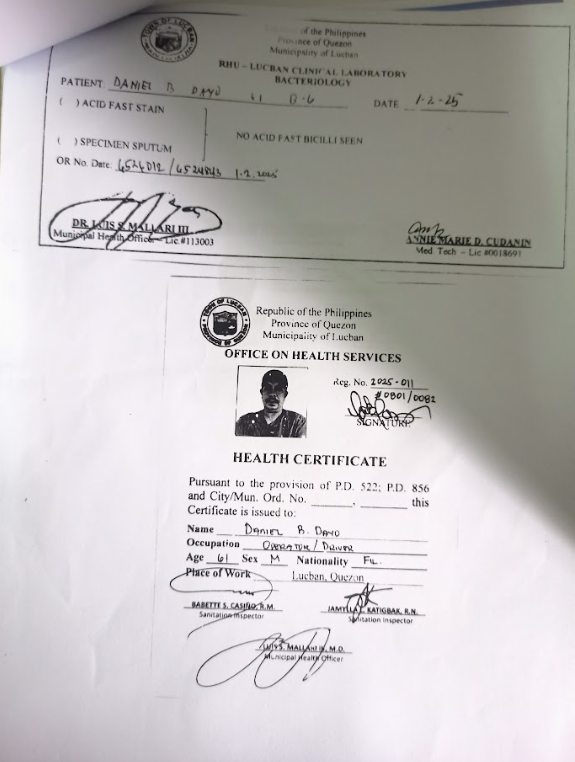 TOWN OF LUCBAN
of the Philippines
Province of Quezon
Municipality of Lucban
RHU – LUCBAN CLINICAL LABORATORY
BACTERIOLOGY
PATIENT: DANIEL B DAYO 61 DATE 1-2-25
( ) ACID FAST STAIN
( ) SPECIMEN SPUTUM
NO ACID FAST BICILLI SEEN
OR No. Date:
DR. LUIS S. MALLARI III
Municipal Health Officer – Lic #113003
ANNIE MARIE D. CUDANIN
Med. Tech – Lic #0018691
TOWN OF LUCBAN
PROVINCE OF QUEZON
Republic of the Philippines
Province of Quezon
Municipality of Lucban
OFFICE ON HEALTH SERVICES
Reg. No. 2025-011
#0801/0082
SIGNATURE
HEALTH CERTIFICATE
Pursuant to the provision of P.D. 522; P.D. 856
and City/Mun. Ord. No. ______, ______ this
Certificate is issued to:
Name DANIEL B. DAYO
Occupation OPERATOR / DRIVER
Age 61 Sex M Nationality FIL.
Place of Work Lucban, Quezon
BABETTE S. R.M.
Sanitation Inspector
KATIGBAK, R.N.
Sanitation Inspector
MALLARI III, M.D.
Municipal Health Officer